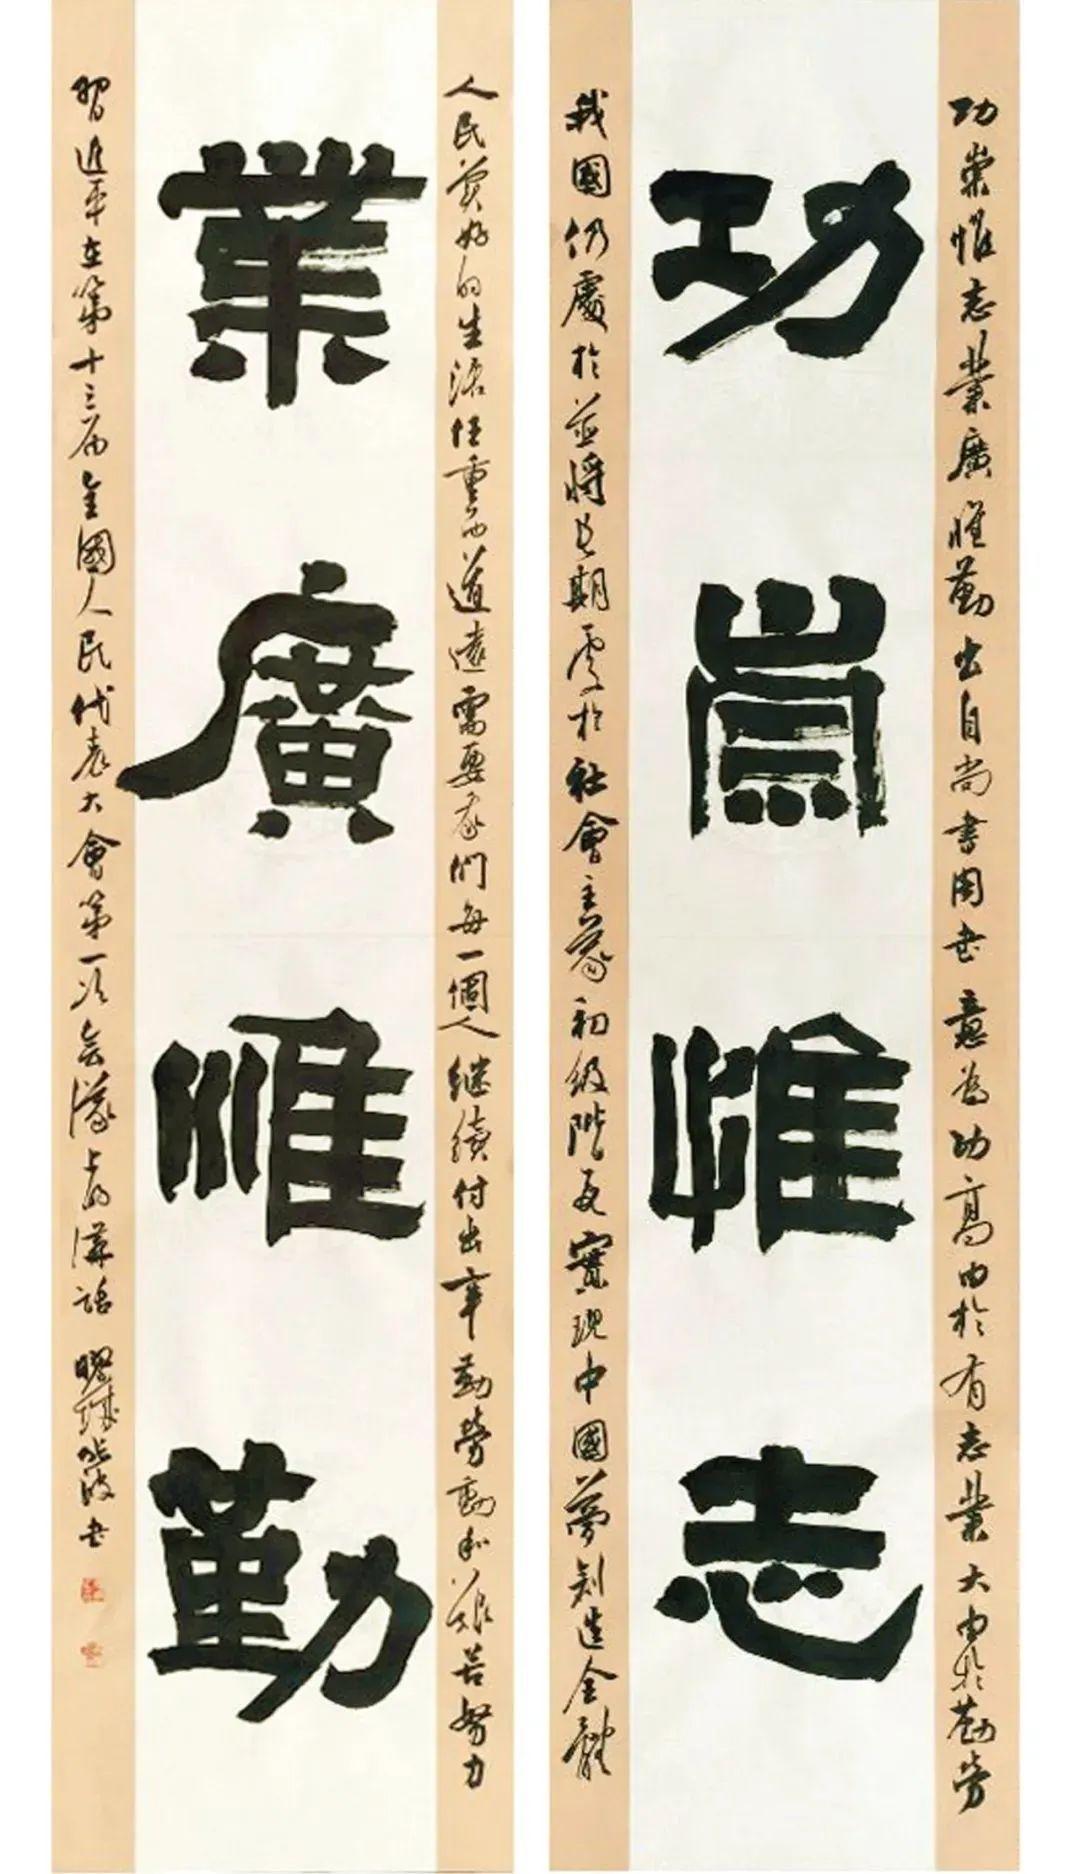 功崇惟志業廣惟勤出自尚書周書意為功高由於有志業大由於勤勞
功崇惟志
我國仍處於並將長期處於社會主義初級階段實現中國夢創造全體
人民美好的生活任重而道遠需要我們每一個人继續付出辛勤勞動和艱苦努力
業廣惟勤
習近平在第十三届全國人民代表大會第一次會議上的講話 書